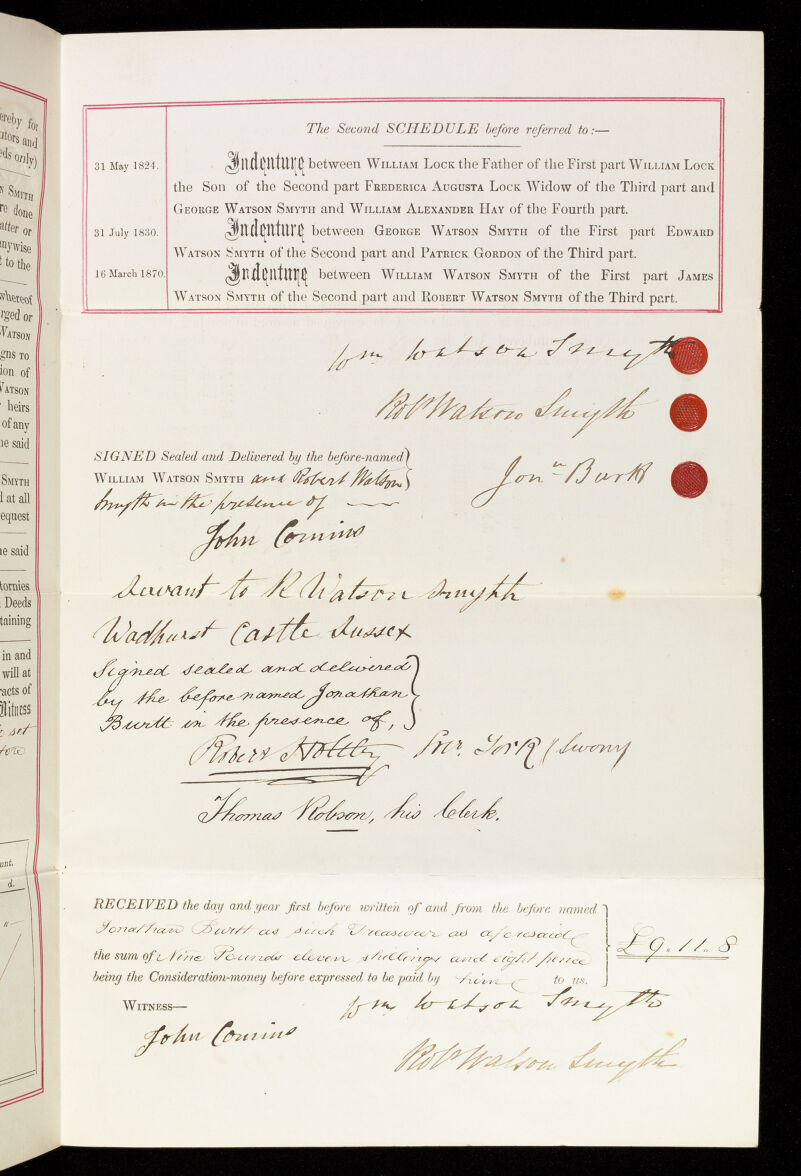 ereby for
utors and
eds only)
N SMYTH
re done
atter or
nywise
t to the
whereof
rged or
WATSON
gns TO
ion of
WATSON
heirs
of any
he said
SMYTH
d at all
equest
he said
tornies
Deeds
taining
in and
will at
racts of
Witness
set
fore
unt.
d.
The Second SCHEDULE before referred to:—
31 May 1824. Indenture between WILLIAM LOCK the Father of the First part WILLIAM LOCK
the Son of the Second part FREDERICA AUGUSTA LOCK Widow of the Third part and
GEORGE WATSON SMYTH and WILLIAM ALEXANDER HAY of the Fourth part.
31 July 1830. Indenture between GEORGE WATSON SMYTH of the First part EDWARD
WATSON SMYTH of the Second part and PATRICK GORDON of the Third part.
16 March 1870. Indenture between WILLIAM WATSON SMYTH of the First part JAMES
WATSON SMYTH of the Second part and ROBERT WATSON SMYTH of the Third part.
Wm Watson Smyth
Robt Watson Smyth
SIGNED Sealed and Delivered by the before-named
WILLIAM WATSON SMYTH and Robert Watson
Smyth in the presence of
Jonn Burtt
John Comins
Servant to R Watson Smyth
Wadhurst Castle Sussex
Signed sealed and delivered
by the before named Jonathan
Burtt in the presence of,
Robert Solr. York
Thomas Robson, his Clerk.
RECEIVED the day and year first before written of and from the before named
Jonathan Burtt as such Treasurer as aforesaid
the sum of Nine Pounds eleven shillings and eight pence
£9.11.8
being the Consideration-money before expressed to be paid by him to us.
WITNESS—
Wm Watson Smyth
John Comins
Robt Watson Smyth